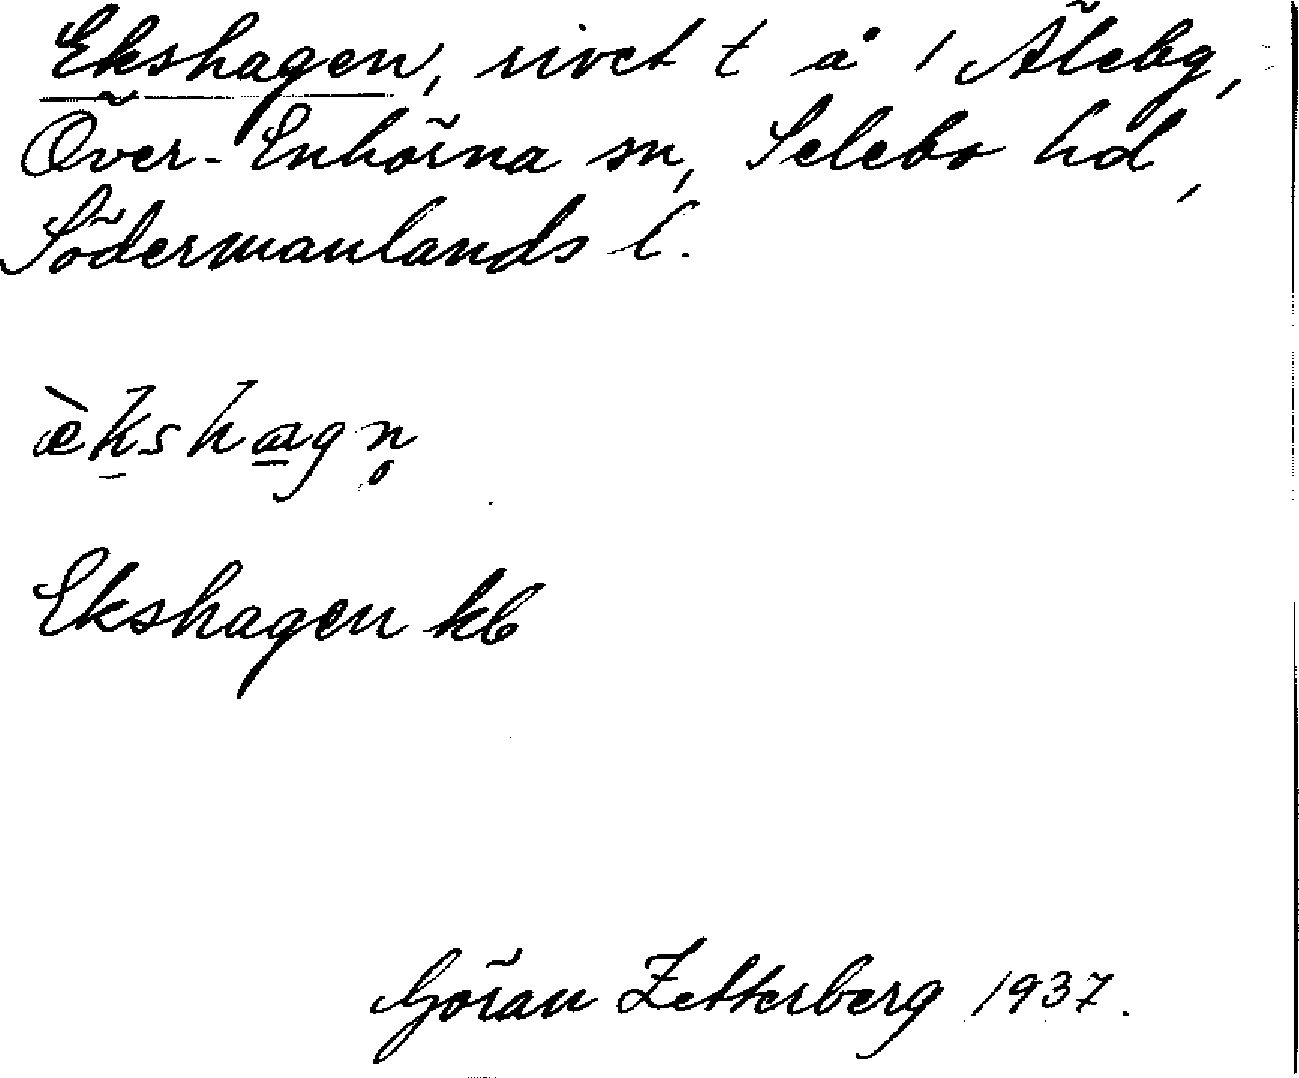 Ekshagen, rivet t å i Äleby,
Över-Enhörna sn, Selebo hd,
Södermanlands l.
èkshagn̥
Ekshagen kb
Göran Zetterberg 1937.